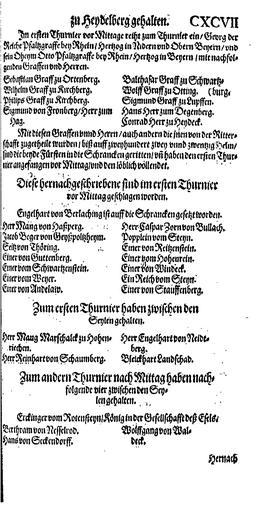 zu Heydelberg gehalten. CXCVII
Im ersten Thurnier vor Mittage reiht zum Thurnier ein / Georg der
Reiche Pfaltzgraffe bey Rhein / Hertzog in Nidern und Obern Beyern / und
sein Oheym Otto Pfaltzgraffe bey Rhein / Hertzog in Beyern / mit nachfol-
genden Graffen und Herren.
Sebastian Graff zu Ortenberg.
Wilhelm Graff zu Kirchberg.
Philips Graff zu Kirchberg.
Sigmund von Fronberg / Herr zum
Hag.
Balthasar Graff zu Schwartz-
Wolff Graff zu Otting. (burg.
Sigmund Graff zu Lupffen.
Hans Herr zum Degenberg.
Konrad Herr zu Heydeck.
Mit diesen Graffen unnd Herrn / auch andern die jnen von der Ritter-
schafft zugetheilt wurden / biß auff zweyhundert zwey unnd zwentzig Helm /
sind die beyde Fürsten in die Schrancken geritten / uñ haben den ersten Thur-
nier angefangen vor Mittag / und den löblich vollendet.
Diese hernachgeschriebene sind im ersten Thurnier
vor Mittag geschlagen worden.
Engelhart von Berlaching ist auff die Schrancken gesetzt worden.
Herr Mang von Haßperg.
Jacob Beger von Geyßpoltzheym.
Seitz von Thöring.
Einer von Guttenberg.
Einer vom Schwartzenstein.
Einer vom Weyer.
Einer von Andelaw.
Herr Caspar Zorn von Bullach.
Popplein vom Steyn.
Einer von Reitzenstein.
Einer vom Hohenrein.
Einer von Windeck.
Ein Reich vom Steyn.
Einer von Stauffenberg.
Zum ersten Thurnier haben zwischen den
Seylen gehalten.
Herr Maug Marschalck zu Hohen-
riechen.
Herr Reinhart von Schaumberg.
Herr Engelhart von Neidt-
berg.
Bleickhart Landschad.
Zum andern Thurnier nach Mittag haben nach-
folgende vier zwischen den Sey-
len gehalten.
Erckinger vom Rotensteyn / König in der Gesellschafft deß Esels /
Berthram von Nesselrod.
Hans von Seckendorff.
Wolffgang von Wal-
deck.
Hernach